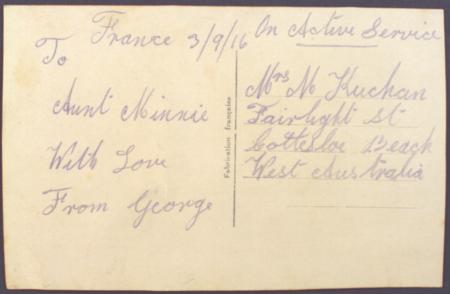 France 3/9/16
On Active Service
To
Aunt Minnie
With Love
From George
Fabrication française
Mrs M Kuchan
Fairlight St
Cottesloe Beach
West Australia